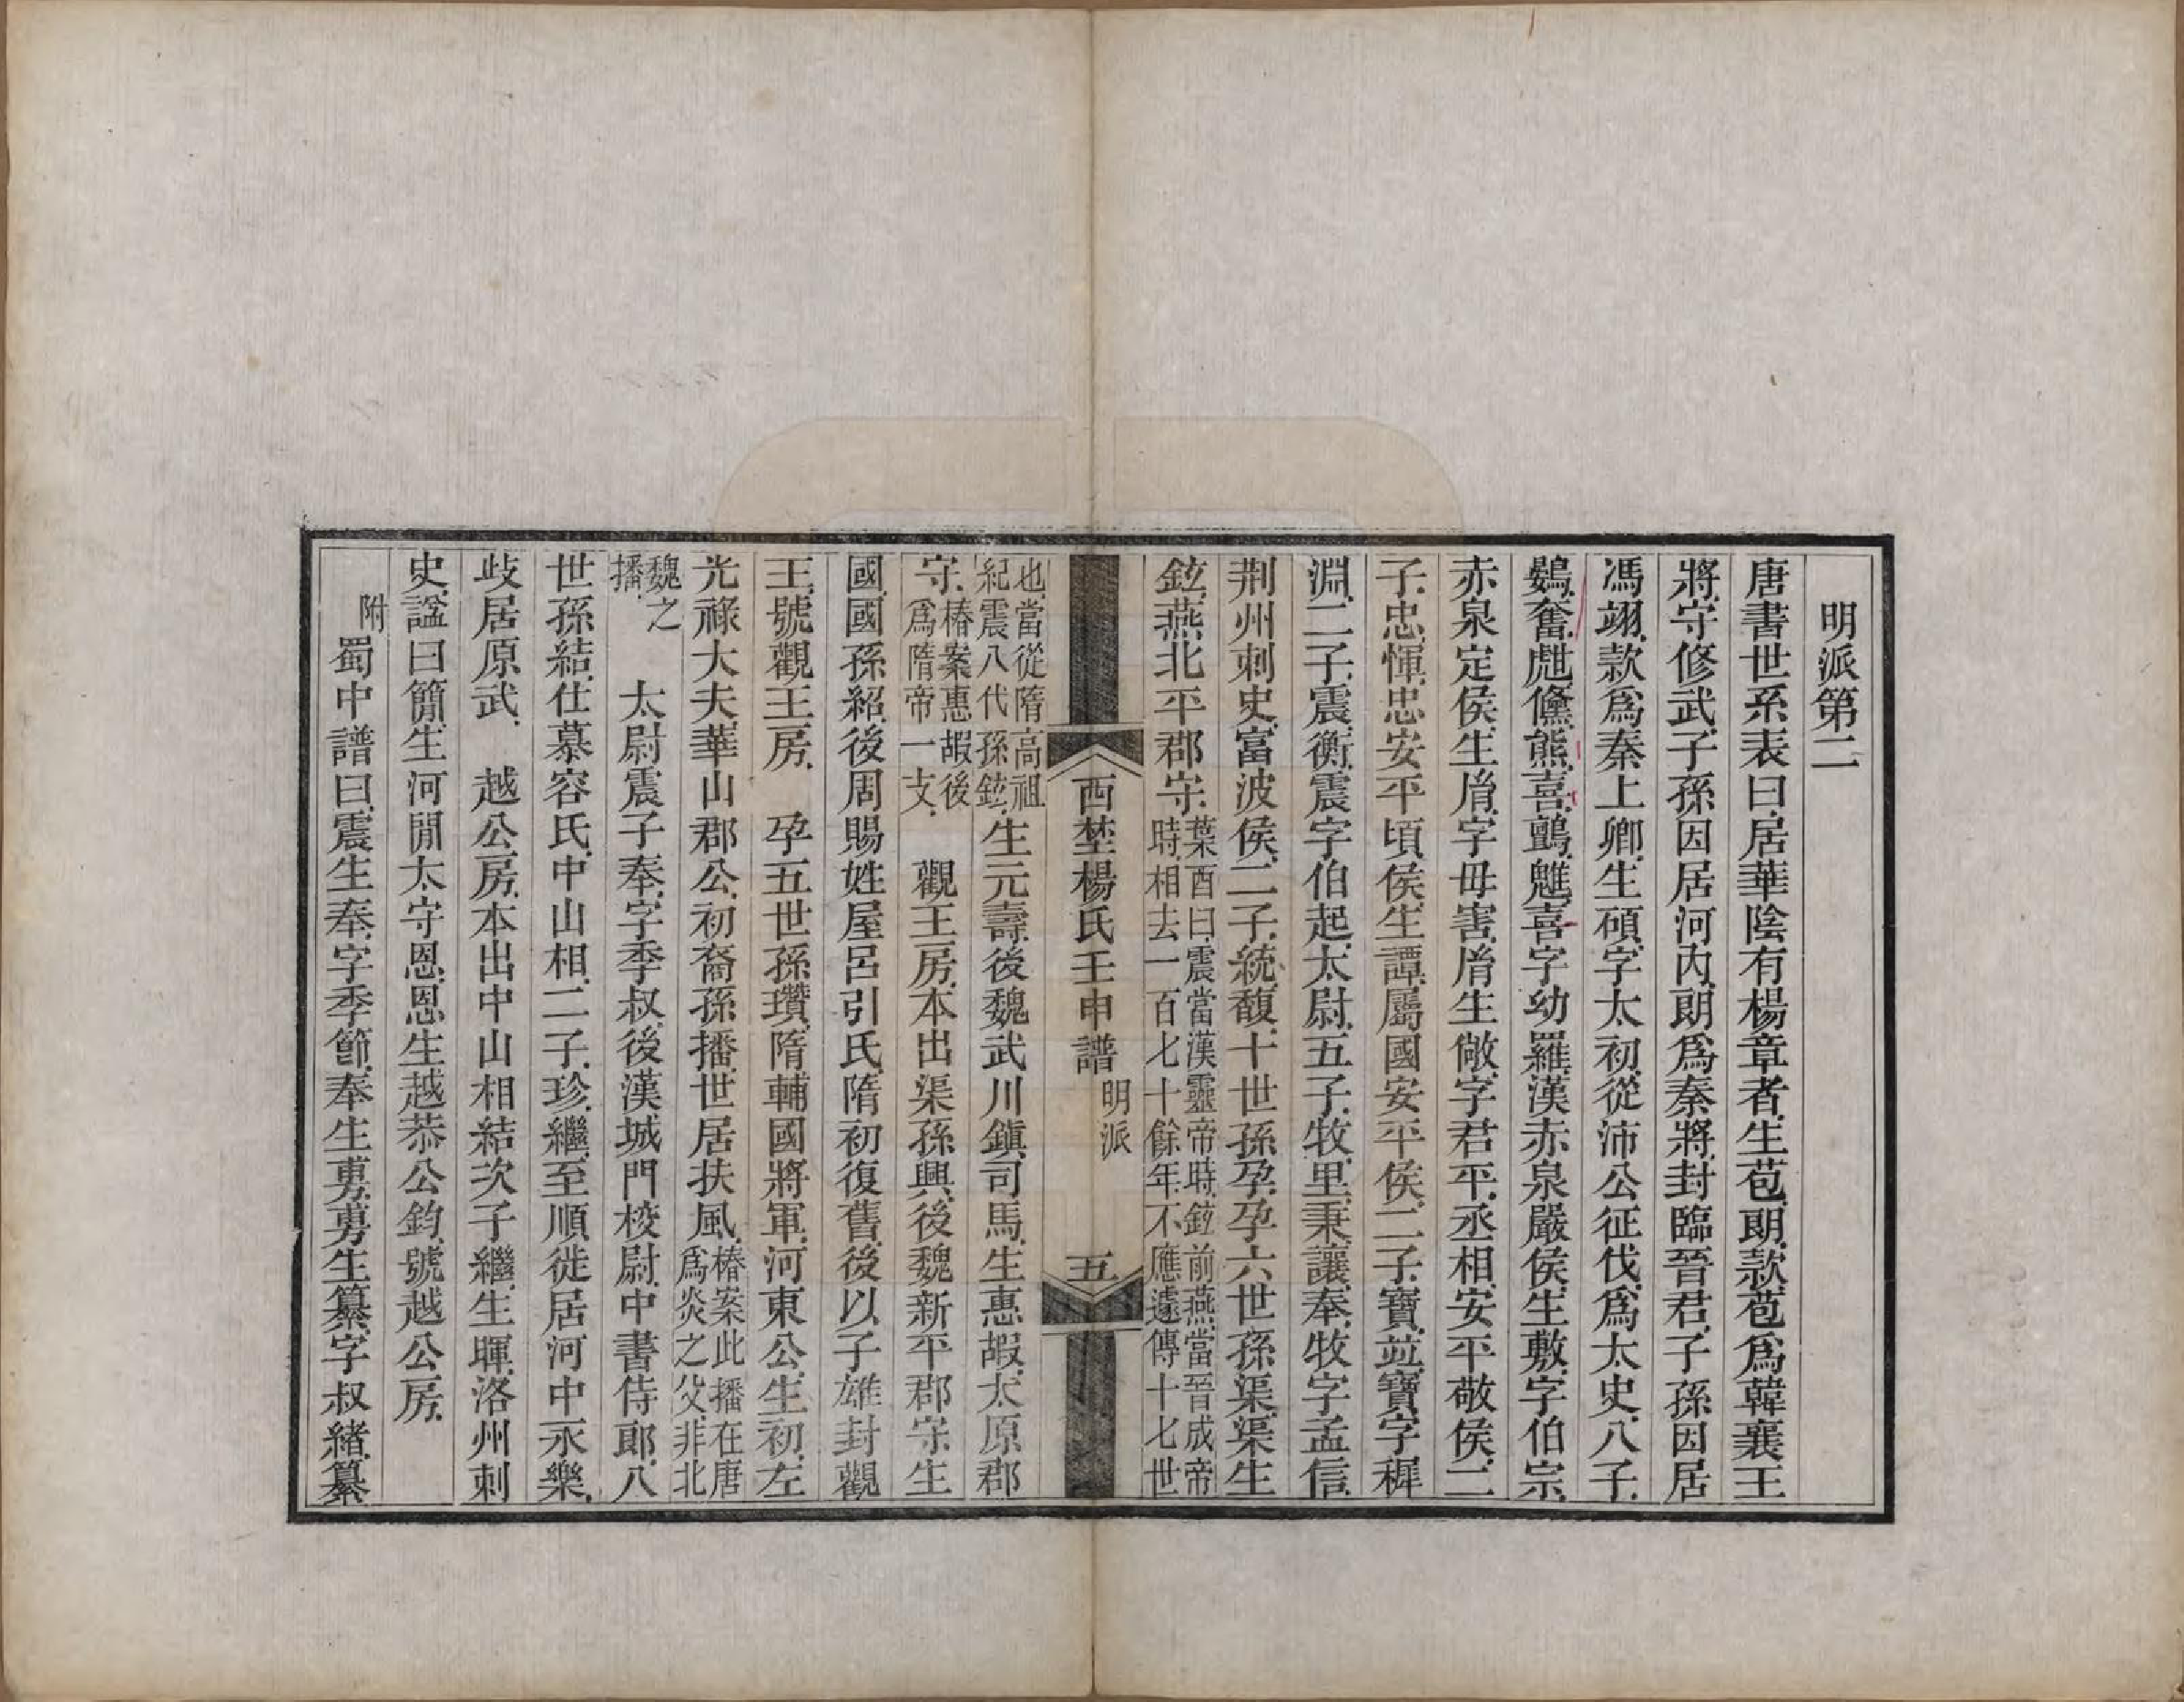 明派第二
唐書世系表曰居華陰有楊章者生苞朗款苞爲韓襄王
將守修武子孫因居河內朗爲秦將封臨晉君子孫因居
馮翊款爲秦上卿生碩字太初從沛公征伐爲太史八子
鷃奮䖙儵熊喜鸇魋喜字幼羅漢赤泉嚴侯生敷字伯宗
赤泉定侯生胤字毋害胤生敞字君平丞相安平敬侯二
子忠惲忠安平頃侯生譚屬國安平侯二子寶竝寶字稺
淵二子震衡震字伯起太尉五子牧里秉讓奉牧字孟信
荆州刺史富波侯二子統馥十世孫孕孕六世孫渠渠生
鉉燕北平郡守葉酉曰震當漢靈帝時鉉前燕當晉成帝
時相去一百七十餘年不應遽傳十七世
西埜楊氏壬申譜 明派 五
也當從隋高祖
紀震八代孫鉉生元壽後魏武川鎭司馬生惠嘏太原郡
守椿案惠嘏後
爲隋帝一支 觀王房本出渠孫興後魏新平郡守生
國國孫紹後周賜姓屋呂引氏隋初復舊後以子雄封觀
王號觀王房 孕五世孫瓚隋輔國將軍河東公生初左
光祿大夫華山郡公初裔孫播世居扶風椿案此播在唐
爲炎之父非北
魏之
播 太尉震子奉字季叔後漢城門校尉中書侍郎八
世孫結仕慕容氏中山相二子珍繼至順徙居河中永樂
歧居原武 越公房本出中山相結次子繼生暉洛州刺
史諡曰簡生河閒太守恩恩生越恭公鈞號越公房
附蜀中譜曰震生奉字季節奉生勇勇生纂字叔緒纂